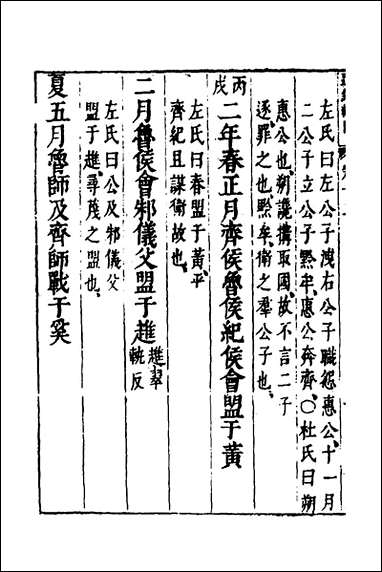 左氏曰左公子洩右公子職怨惠公十一月
二公子立公子黔牟惠公奔齊○杜氏曰朔
惠公也朔讒搆取國故不言二子
逐罪之也黔牟衞之羣公子也
丙戌二年春正月齊侯魯侯紀侯會盟于黃
左氏曰春盟于黃平
齊紀且謀衞故也
二月魯侯會邾儀父盟于趡趡翠軌反
左氏曰公及邾儀父
盟于趡尋蔑之盟也
夏五月魯師及齊師戰于奚